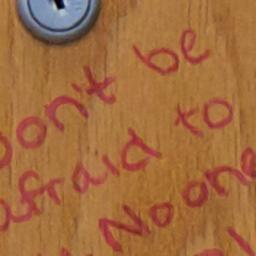 Don't be
afraid to
No one